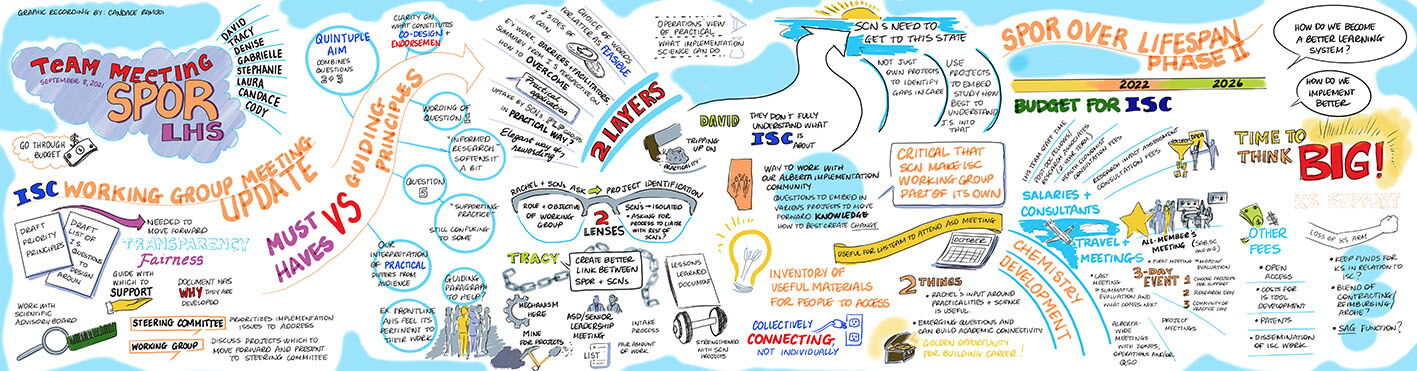 GRAPHIC RECORDING BY: CANDACE RAMJOHN
TEAM MEETING
SEPTEMBER 8, 2021
SPOR
LHS
DAVID
TRACY
DENISE
GABRIELLE
STEPHANIE
LAURA
CANDACE
CODY
GO THROUGH
BUDGET
ISC WORKING GROUP MEETING
UPDATE
DRAFT
PRIORITY
PRINCIPLES
DRAFT
LIST OF
I.S.
QUESTIONS
TO
DESIGN
AROUND
NEEDED TO
MOVE FORWARD
TRANSPARENCY
Fairness
GUIDE WITH
WHICH TO
SUPPORT
DOCUMENT HAS
WHY THEY ARE
DEVELOPED
WORK WITH
SCIENTIFIC
ADVISORY BOARD
STEERING COMMITTEE
PRIORITIZES IMPLEMENTATION
ISSUES TO ADDRESS
WORKING GROUP
DISCUSS PROJECTS WHICH TO
MOVE FORWARD AND PRESENT
TO STEERING COMMITTEE
MUST
HAVES
VS
GUIDING
PRINCIPLES
QUINTUPLE
AIM
COMBINES
QUESTIONS
2 + 3
CLARITY ON
WHAT CONSTITUTES
CO-DESIGN +
ENDORSEMENT
WORDING OF
QUESTION
1
"INFORMED
RESEARCH"
SOFTENS IT
A BIT
QUESTION
5
"SUPPORTING
PRACTICE"
STILL CONFUSING
TO SOME
OUR
INTERPRETATION
OF PRACTICAL
DIFFERS FROM
AUDIENCE
GUIDING
PARAGRAPH
TO HELP?
EX. FRONTLINE
AHS FEEL ITS
PERTINENT TO
THEIR WORK
CHOICE OF WORDS
FOR LATTER AS FEASIBLE
2 SIDES OF
A COIN
KEY WORK, BARRIERS + FACILITATORS,
SUMMARY FROM I'S PERSPECTIVE ON
HOW TO OVERCOME
Practical
application
UPTAKE BY SCN'S
PRACTICAL WAY?
Elegant way of
rewording
2 LAYERS
OPERATIONS VIEW
OF PRACTICAL
WHAT IMPLEMENTATION
SCIENCE CAN DO
TRIPPING
UP ON
PRACTICALITY
RACHEL + SCNS ASK
PROJECT IDENTIFICATION
ROLE + OBJECTIVE
OF WORKING
GROUP
2
LENSES
SCN'S → ISOLATED
• ASKING FOR
PROCESS TO LIAISE
WITH REST OF
SCN'S
TRACY
CREATE BETTER
LINK BETWEEN
SPOR + SCNS
MECHANISM
HERE
MINE
FOR PROJECTS
ASD/SENIOR
LEADERSHIP
MEETING
LIST
INTAKE
PROCESS
FAIR AMOUNT
OF WORK
LESSONS
LEARNED
DOCUMENT
STRENGTHENED
WITH SCN
PROJECTS
SCN'S NEED TO
GET TO THIS STATE
NOT JUST
OWN PROJECTS
TO IDENTIFY
GAPS IN CARE
USE
PROJECTS
TO EMBED
STUDY HOW
BEST TO
UNDERSTAND
I.S. INTO
THAT
DAVID
THEY DON'T FULLY
UNDERSTAND WHAT
ISC IS
ABOUT
WAY TO WORK WITH
OUR ALBERTA IMPLEMENTATION
COMMUNITY
QUESTIONS TO EMBED IN
VARIOUS PROJECTS TO MOVE
FORWARD KNOWLEDGE
HOW TO BEST CREATE CHANGE
CRITICAL THAT
SCN MAKE ISC
WORKING GROUP
PART OF ITS OWN
USEFUL FOR LHS TEAM TO ATTEND ASD MEETING
OCTOBER
INVENTORY OF
USEFUL MATERIALS
FOR PEOPLE TO ACCESS
COLLECTIVELY
CONNECTING,
NOT INDIVIDUALLY
2 THINGS
• RACHEL'S INPUT AROUND
PRACTICALITIES + SCIENCE
IS USEFUL.
• EMERGING QUESTIONS AND
CAN BUILD ACADEMIC CONNECTIVITY
GOLDEN OPPORTUNITY
FOR BUILDING CAREER!
CHEMISTRY
DEVELOPMENT
SPOR OVER LIFESPAN
PHASE II
2022
2026
BUDGET FOR ISC
LHS TEAM STAFF TIME
POST-DOC FELLOWS/
RESEARCH ASSOCIATES
HEALTH ECONOMIST
CONSULTATION FEES
RESEARCH IMPACT ASSESSMENT
CONSULTATION FEES
IDEA
SALARIES +
CONSULTANTS
TRAVEL +
MEETINGS
ALL-MEMBER'S
MEETING
• FIRST MEETING
• MIDPOINT
EVALUATION
• LAST
MEETING
• SUMMATIVE
EVALUATION AND
WHAT COMES NEXT
3-DAY
EVENT
1
CHOOSE PROJECTS
FOR SUCCESS
2
RESEARCH DAY
3
COMMUNITY OF
PRACTICE DAY
ALBERTA-
WIDE
MEETINGS
WITH ZONES,
OPERATIONS AND/OR
QSO
PROJECT
MEETINGS
HOW DO WE BECOME
A BETTER LEARNING
SYSTEM?
HOW DO WE
IMPLEMENT
BETTER
TIME TO
THINK BIG!
OTHER
FEES
• OPEN
ACCESS
• COSTS FOR
IS TOOL
DEVELOPMENT
• PATENTS
• DISSEMINATION
OF ISC WORK.
KS SUPPORT
LOSS OF KS ARM
• KEEP FUNDS FOR
KS IN RELATION
TO ISC?
• BLEND OF
CONTRACTING/
REIMBURSING/
ARCHE?
• SAG FUNCTION?